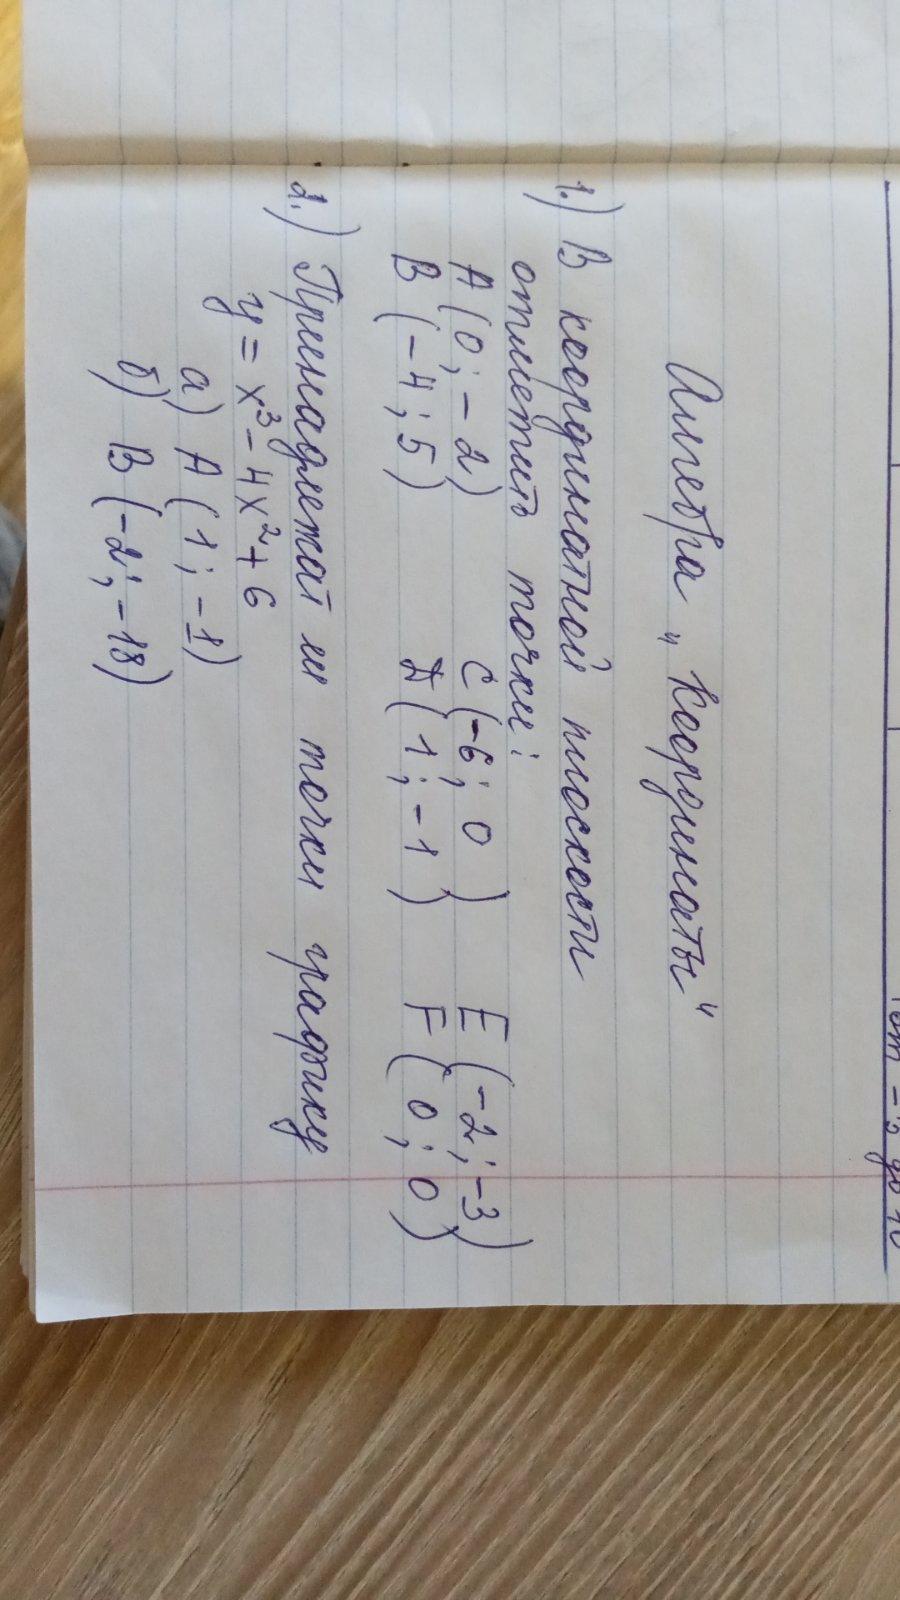 Алгебра „Координаты"
1.) В координатной плоскости
отметить точки:
A (0; -2) C (-6; 0) E (-2; -3)
B (-4; 5) D (1; -1) F (0; 0)
2.) Принадлежат ли точки графику
y = x³ - 4x² + 6
а) A (1; -1)
б) B (-2; -18)